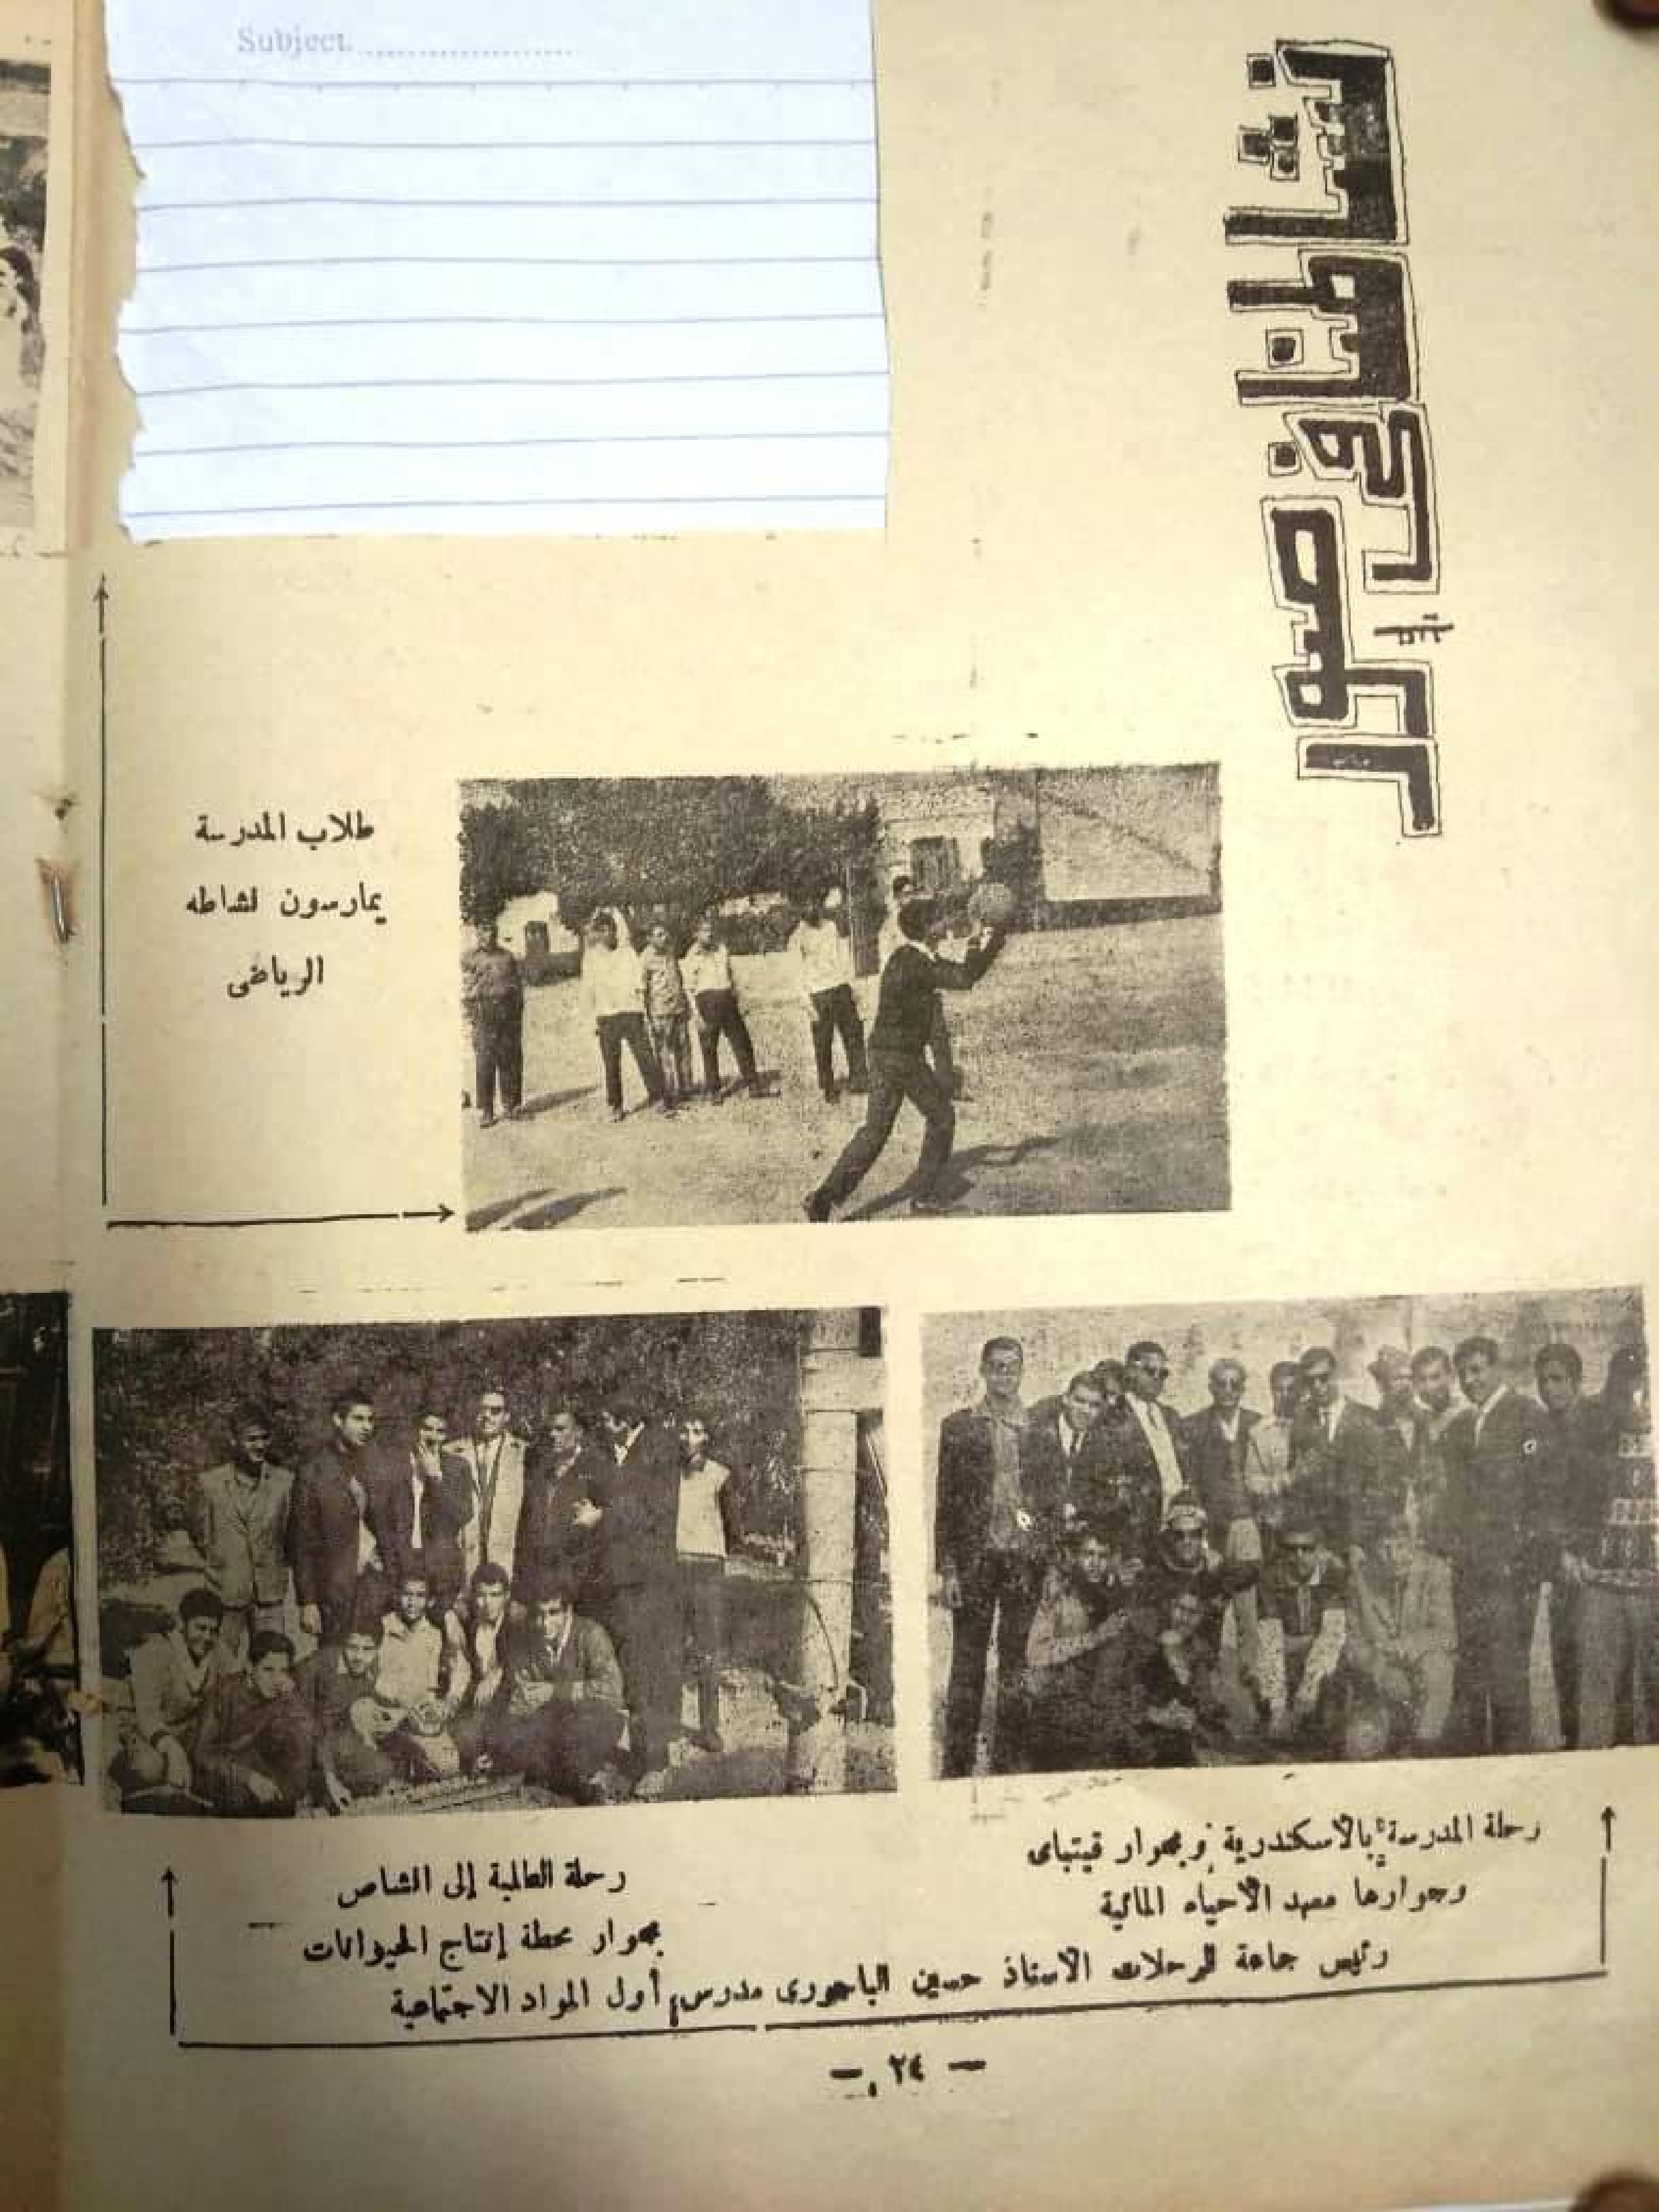 Subject
طلاب المدرسة
يمارسون نشاطه
الرياضى
رحلة المدرسة بالاسكندرية وبجوار قيتباى
وجوارها معهد الاحياء المائية
رحلة الطلبة إلى
بجوار محطة إنتاج الحيوانات
رئيس جماعة الرحلات الاستاذ حسين الباجورى مدرس أول المواد الاجتماعية
— ٢٤ —